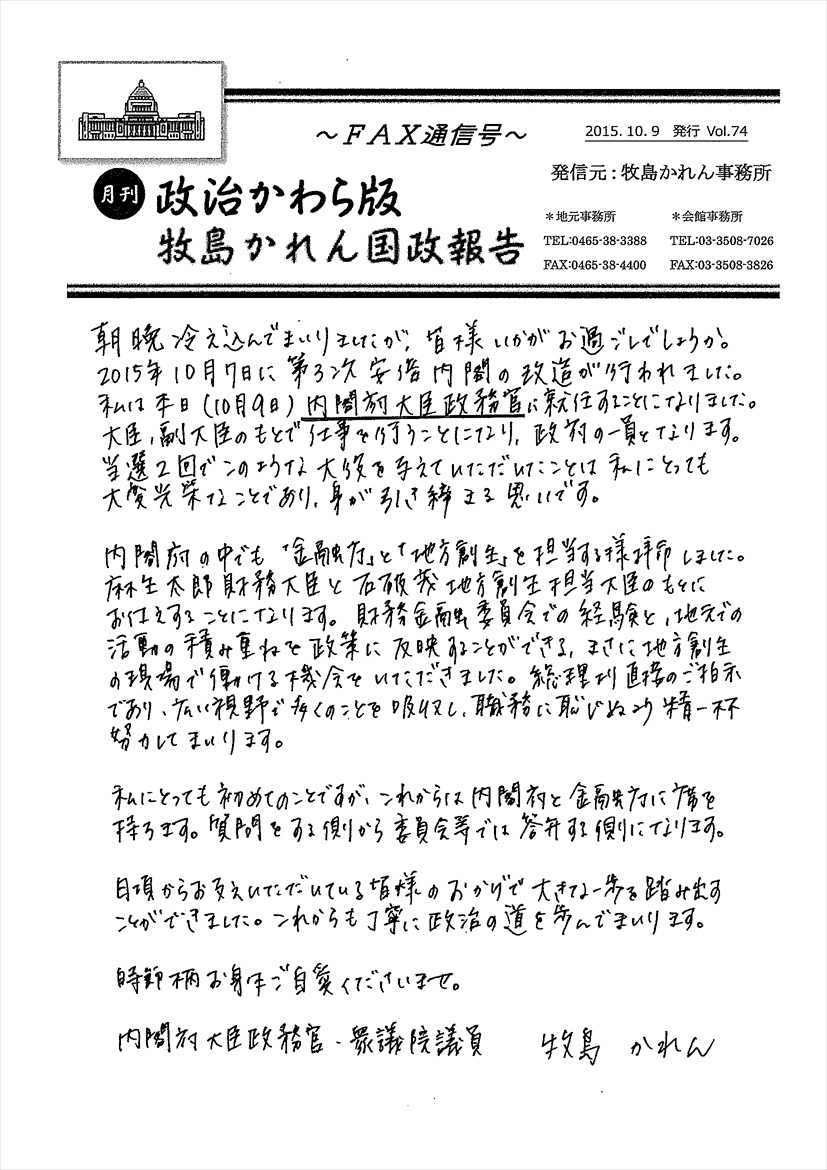 ～FAX通信号～
2015.10.9 発行 Vol.74
発信元：牧島かれん事務所
月刊 政治かわら版
牧島かれん国政報告
＊地元事務所 ＊会館事務所
TEL:0465-38-3388 TEL:03-3508-7026
FAX:0465-38-4400 FAX:03-3508-3826
朝晩冷え込んでまいりましたが、皆様いかがお過ごしでしょうか。
2015年10月7日に第3次安倍内閣の改造が行われました。
私は本日(10月9日)内閣府大臣政務官に就任することになりました。
大臣、副大臣のもとで仕事を行うことになり、政府の一員となります。
当選2回でこのような大役を与えていただいたことは私にとっても
大変光栄なことであり、身が引き締まる思いです。
内閣府の中でも「金融庁」と「地方創生」を担当する様拝命しました。
麻生太郎財務大臣と石破茂地方創生担当大臣のもとに
お仕えすることになります。財務金融委員会での経験と、地元での
活動の積み重ねを政策に反映することができる、まさに地方創生
の現場で働ける機会をいただきました。総理より直接のご指示
であり、広い視野で多くのことを吸収し、職務に恥じぬよう精一杯
努力してまいります。
私にとっても初めてのことですが、これからは内閣府と金融庁に席を
持ちます。質問をする側から委員会等では答弁する側になります。
日頃からお支えいただいている皆様のおかげで大きな一歩を踏み出す
ことができました。これからも丁寧に政治の道を歩んでまいります。
時節柄お身体ご自愛くださいませ。
内閣府大臣政務官・衆議院議員 牧島 かれん